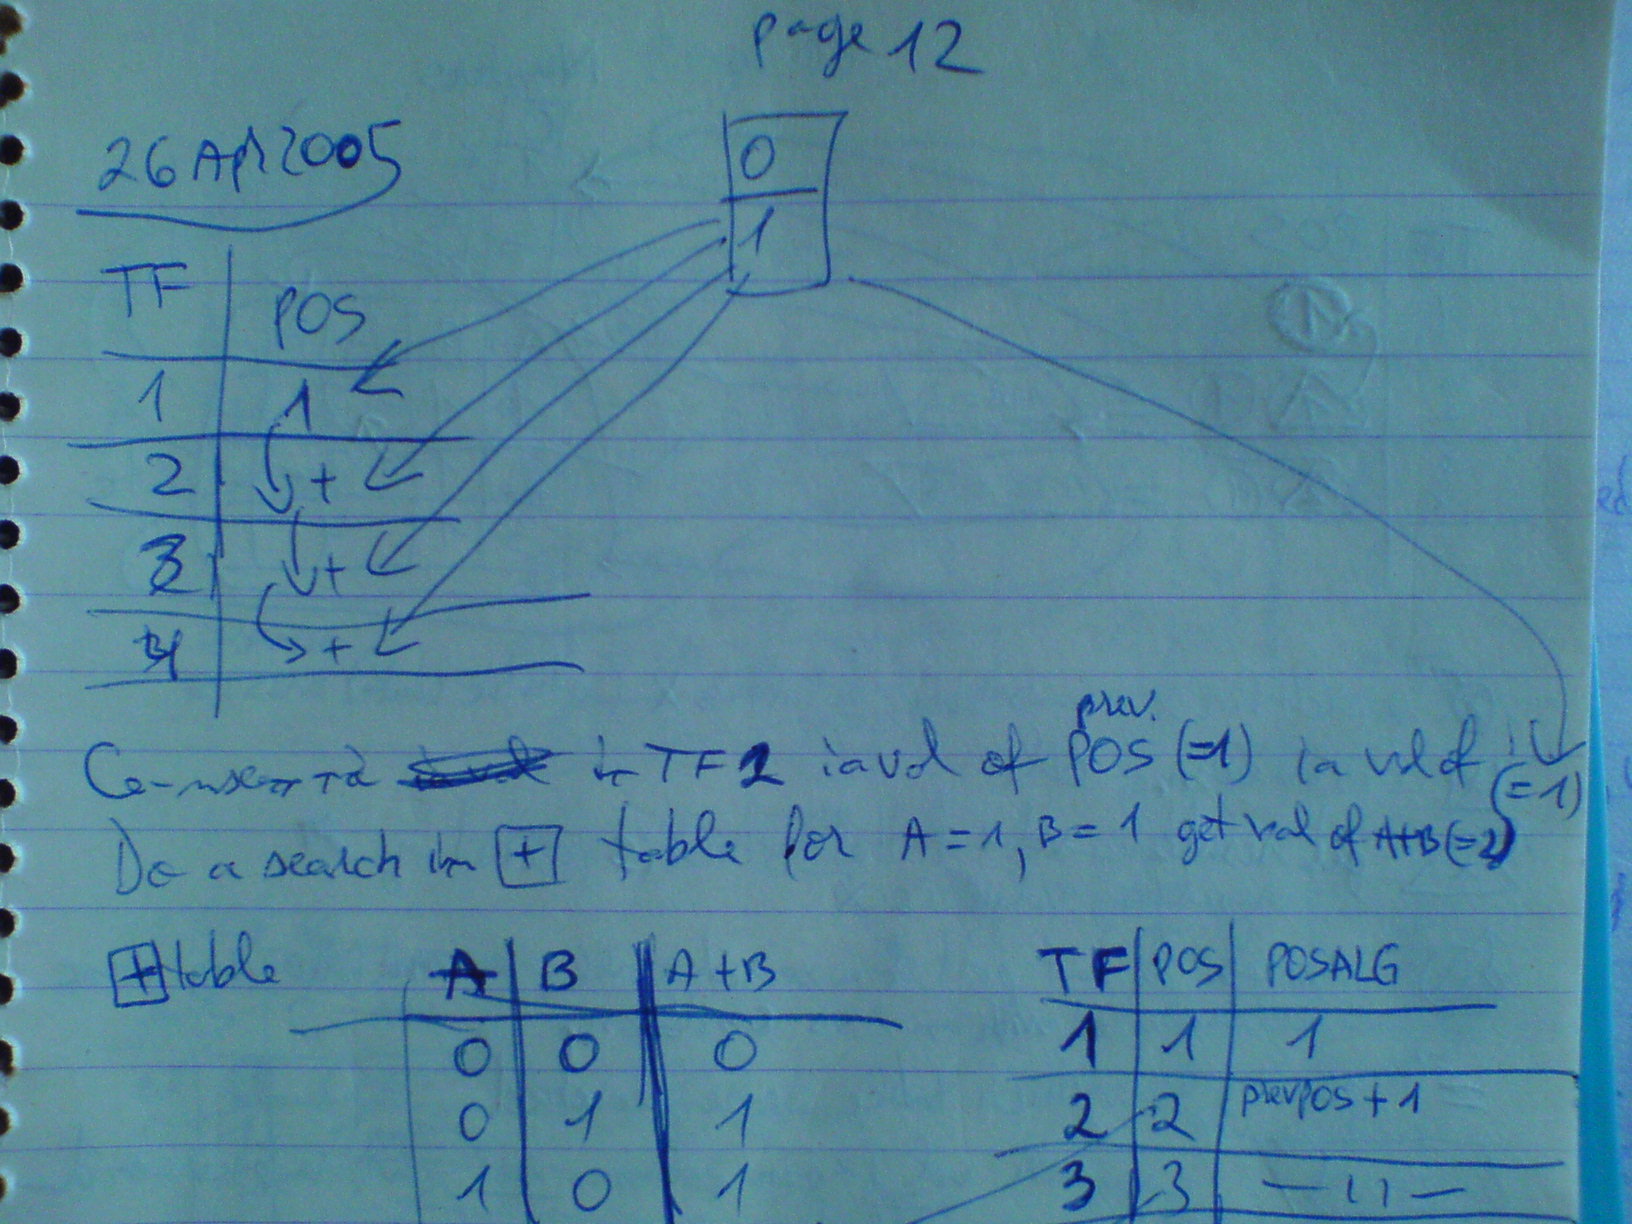 page 12
26 Apr 2005
0
1
TF POS
1 1
2 +
3 +
4 +
prev.
in TF2 is val of POS (=1) is val of
(=1)
Do a search in + table for A=1, B=1 get val of A+B(=2)
+ table
A B A+B
0 0 0
0 1 1
1 0 1
TF POS POSALG
1 1 1
2 2 prevpos+1
3 3 —11—